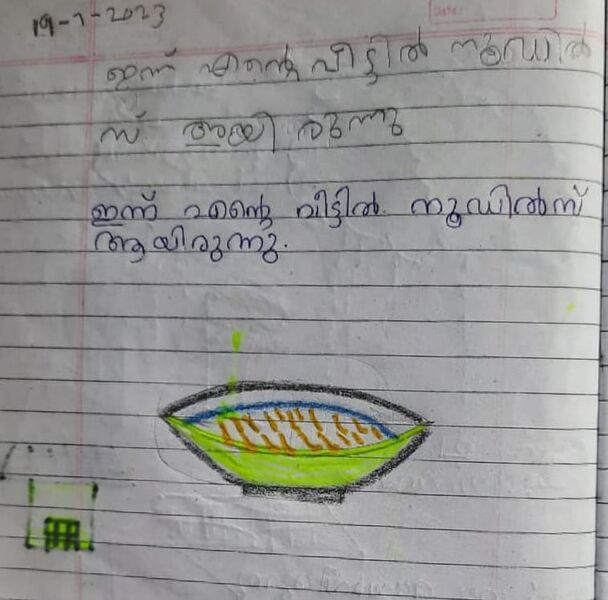 19-7-2023
Date:
ഇന്ന് എന്റെ വീട്ടിൽ നൂഡിൽ
സ് അയി രുന്നു
ഇന്ന് എന്റെ വീട്ടിൽ നൂഡിൽസ്
ആയിരുന്നു.